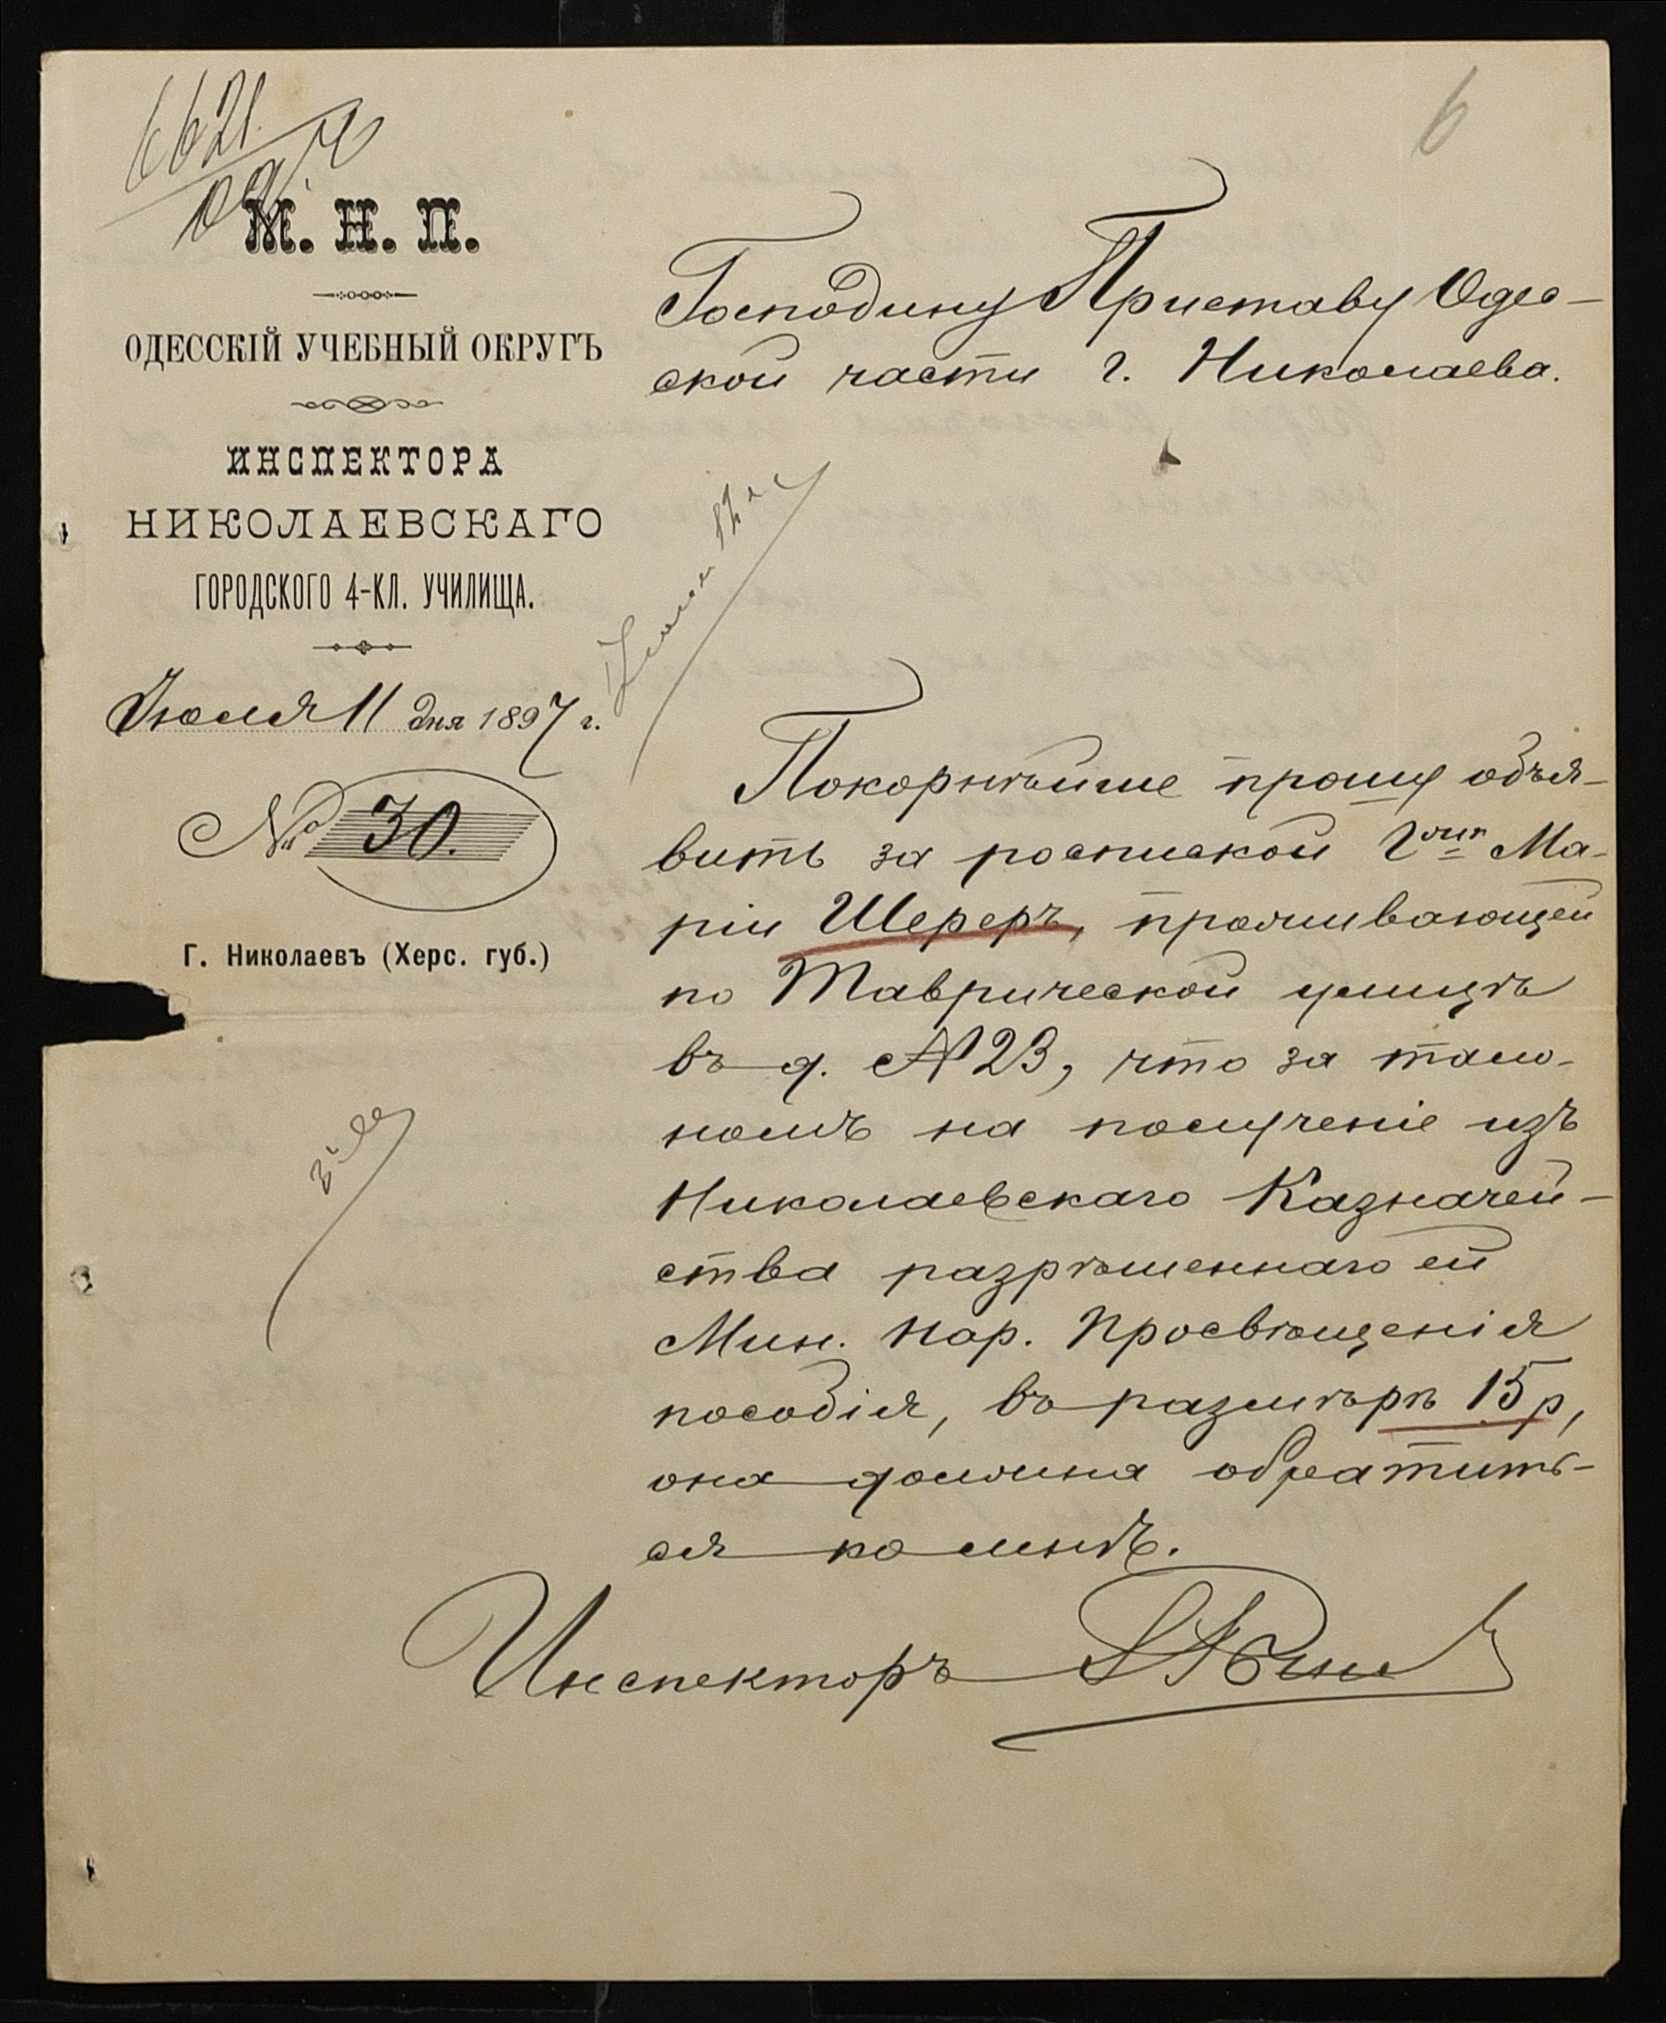 6621
6
М. Н. П.
ОДЕССКІЙ УЧЕБНЫЙ ОКРУГЪ
ИНСПЕКТОРА
НИКОЛАЕВСКАГО
ГОРОДСКОГО 4-КЛ. УЧИЛИЩА.
Іюля 11 дня 1897 г.
№ 30.
Г. Николаевъ (Херс. губ.)
Господину Приставу Одес-
ской части г. Николаева.
Покорнѣйше прошу объя-
вить за росписки Ма-
ріи Шереръ, проживающей
по Таврической улицѣ
въ д. №23, что за тало-
номъ на полученіе изъ
Николаевскаго Казначей-
ства разрѣшеннаго ей
Мин. Нар. Просвѣщенія
пособія, въ размѣрѣ 15 р,
она должна обратить-
ся ко мнѣ.
Инспекторъ